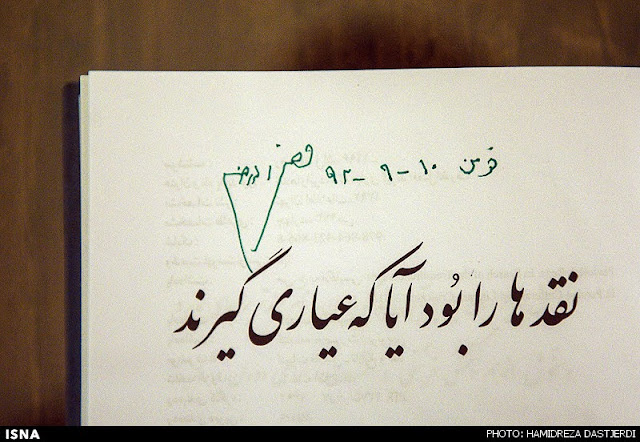 ۱۰ - ۹ - ۹۲
نقدها را بُوَد آیا که عیاری گیرند
ISNA
PHOTO: HAMIDREZA DASTJERDI